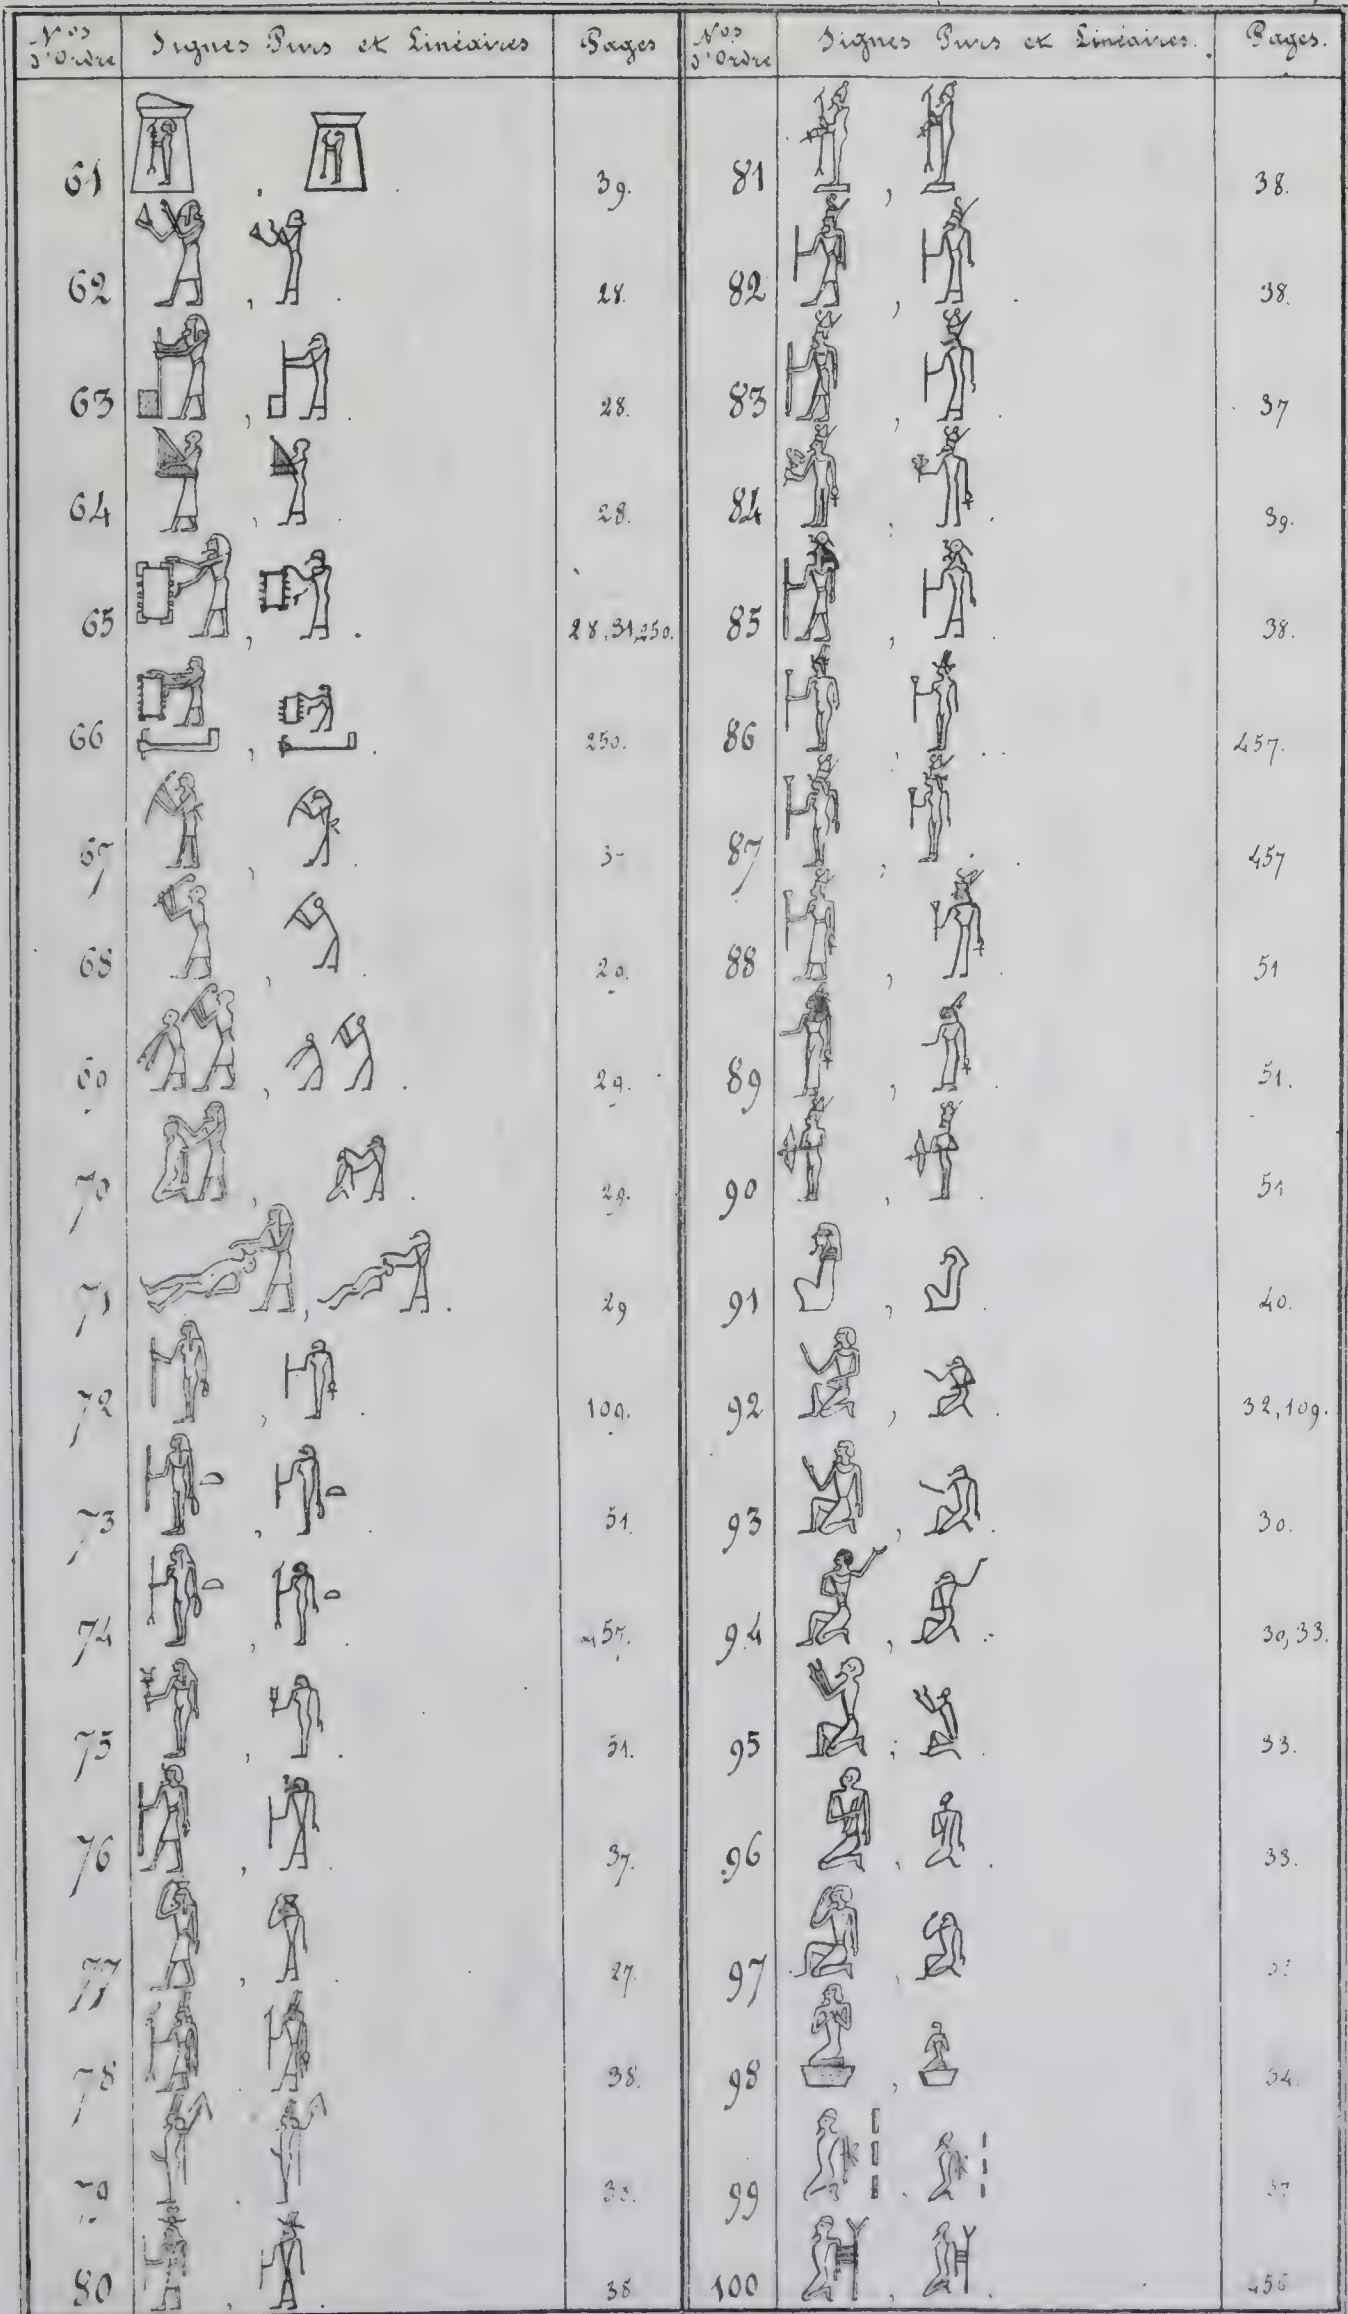 Nos d'Ordre	Signes Purs et Linéaires	Pages
61	39.
62	28.
63	28.
64	28.
65	28,31,250.
66	250.
67
68
69	29.
70	29.
71	29
72	109.
73	51.
74
75	51.
76	37.
77	27.
78	38.
79
80	38
Nos d'Ordre	Signes Purs et Linéaires.	Pages.
81	38.
82	38.
83	37
84	39.
85	38.
86	457.
87	457
88	51
89	51.
90	51
91	40.
92	32,109.
93	30.
94	30,33.
95	33.
96	33.
97
98	34.
99	37
100	456